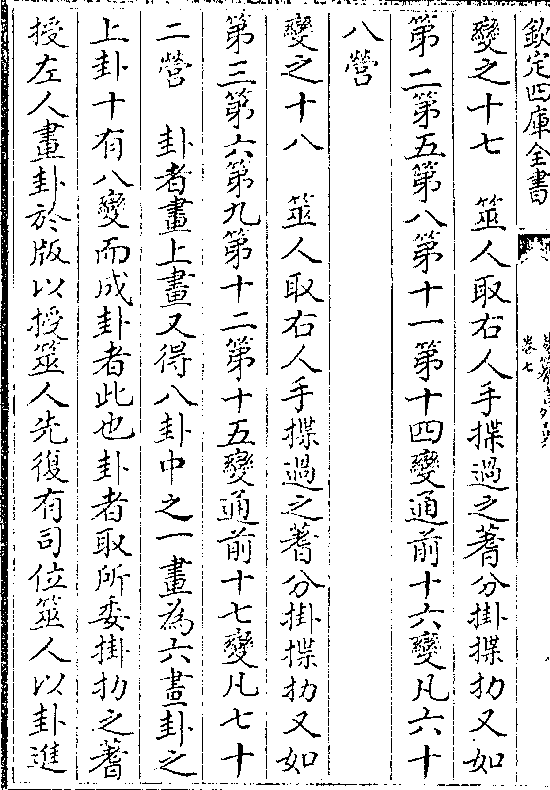 欽定四庫全書
卷七
變之十七　筮人取右人手揲過之蓍分掛揲扐又如
第二第五第八第十一第十四變通前十六變凡六十
八營
變之十八　筮人取右人手揲過之蓍分掛揲扐又如
第三第六第九第十二第十五變通前十七變凡七十
二營　卦者畫上畫又得八卦中之一畫為六畫卦之
上卦十有八變而成卦者此也卦者取所委掛扐之蓍
授左人畫卦於版以授筮人先復有司位筮人以卦進